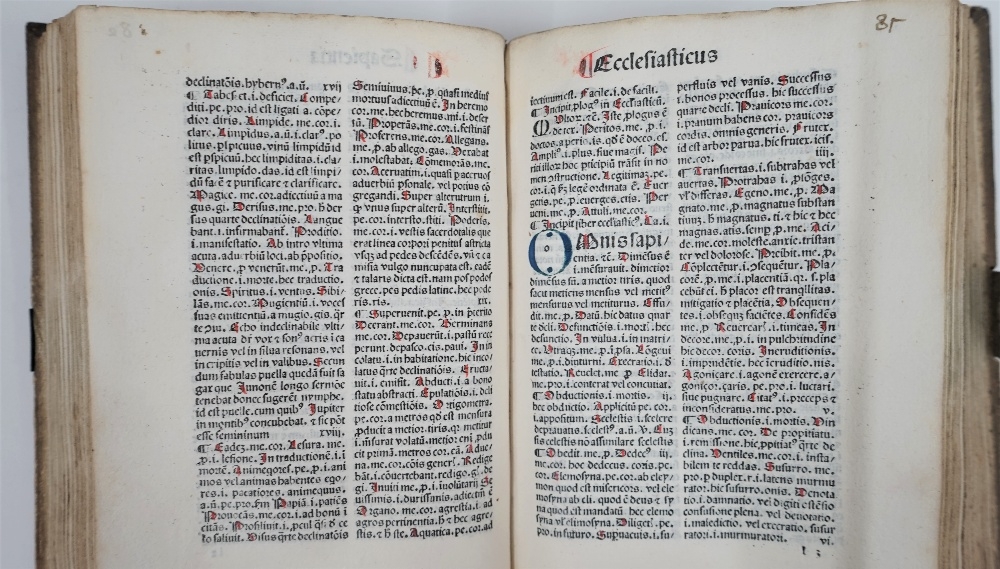 Sapientia
declinatõis. hybernꝰ. a. ũ. xvij
¶ Tabescet .i. deficiet. Compe/
diti. pe. pro. id est ligati a. cõpe/
dior diris. Limpide. me. cor. i.
clare. Limpidus. a. ũ. i. clarꝰ. po
litus. pspicuus. vinũ limpidũ id
est pspicuũ. hec limpiditas .i. cla/
ritas. limpido. das. id est limpi/
dũ facẽ & purificare & clarificare.
Magice. me. cor. adiectiuũ a ma
gus. gi. Derisus. me. pro. h der
sus quarte declinatiõis. Langue
bant .i. infirmabant. Proditio.
i. manifestatio. Ab intro vltima
acuta. aduerbiũ loci. ab ppositio.
Venere. p venerũt. me. p. Tra
ductione .i. morte. hec traductio.
onis. Spiritus .i. ventus. Sibi/
lãs. me. cor. Mugientiũ .i. voces
suas emittentiũ. a mugio. gis. qr
te piu. Echo indeclinabile vlti/
ma acuta dr vox & sonꝰ aeris i ca
uernis vel in silua resonans. vel
in criptis vel in vallibus. Secun
dum fabulas puella quedã fuit fa
gat que Junonẽ longo sermõe
tenebat donec fugerẽt nymphe.
id est puelle. cum quibꝰ Jupiter
in montibꝰ concubebat. & sic põt
esse femininum xviij.
¶ Eadẽ. me. cor. Lesura. me.
p. i. lesione. Introductione .i. i
mortẽ. Animequos. pe. p. i. ani
mos vel animas habentes equo/
res .i. pacatiores. animequus.
a. ũ. pe. pro. Em Papiã .i. patiẽs
Prouocãs. me. cor. i. ad bonũ i
citãs. Prosiliuit .i. pcul
lo saliuit. Visus qrte declinatõis
Semiuiuus. pe. p. quasi medius
mortuus adiectiuũ ẽ. In heremo
cor. me. hec heremus. mi. i. deser
tũ. Properãs. me. cor. i. festinãs
Proferens. me. cor. Allegans.
me. p. ab allego. gas. Vexabat
i. molestabat. Cõmemorãs. me.
cor. Aceruatim .i. quasi p aceruos
aduerbiũ psonale. vel potius cõ
gregandi. Super alterutrum .i.
qꝰ vnus super alterũ. Interstitit.
pe. cor. intersto. stiti. Poderis.
me. cor. i. vestis sacerdotalis que
erat linea corpori penitus astricta
vsqz ad pedes descẽdẽs. vñ & ca
misia vulgo nuncupata est. eadẽ
& talaris dicta est. nam pos podos
grece. pes pedis latine. hec pode
ris. ris. xix.
¶ Superuenit. pe. p. in pterito
Deerant. me. cor. Germinans
me. cor. Depauerũt .i. pastũ rece
perunt. depasco. cis. paui. In in
colatu .i. in habitatione. hic inco/
latus quarte declinatiõis. Eructa/
uit .i. emisit. Abducti .i. a bono
statu abstracti. Epulatiõis .i. deli
tiose comestiõis. Ortigometra.
pe. cor. a metros qd est mensura
pducit a metior. tiris. qr metitur
i. mẽsurat volatũ. metior eni pdu
cit primã. metros cor. eã. Adue/
na. me. cor. cõis generꝭ. Redige
bãt .i. cõuertebant. redigo. gꝭ. de
gi. Inuiti me. p. i. inuoluntarij. Se
uissimis .i. durissimis. adiectiũ ẽ
Organo. me. cor. agrestia .i. ad
agros pertinentia. h & hec agre/
stis. & h ste. Aquatica. pe. cor. ad
8r
Ecclesiasticus
iectiuum est. Facile .i. de facili.
¶ Incipit plogꝰ in Ecclesiasticũ.
Mvltorũ. &c. Iste plogus ẽ
de ter. Peritos. me. p. i.
doctos. a peritis. qd ẽ docto. es.
Ampliꝰ .i. plus. siue magis. Pe
ritiꝰ illo
mem. Legitimaz. pe.
cor. i. q fm legẽ ordinata ẽ. Euer
gens. pe. p. energes. etis. Per
ueni. me. p. Attuli. me. cor.
¶ Incipit liber ecclesiasticꝰ. Ca. i.
OMnis sapi/
entia. &c. Dimẽsus ẽ
i. mẽsurauit. dimetior
dimẽsus sũ. a metior tiris. quod
facit metiens mensus vel meritꝰ
mensurus vel metiturus. Effu/
dit. me. p. Datũ. hic datus quar
te decli. Defunctiõis .i. mortꝭ. hec
defunctio. In vulua .i. in matri/
ce. Vtraqz. me. p. ipsa. Lõgeui
me. p. i. diuturni. Execratio. s. de
testatio. Reuelet. me. p. Elidat.
me. pro. i. conterat vel concutiat.
¶ Obductionis .i. mortis. ij.
hec obductio. Applicití pe. cor.
i. appositum. Scelestis .i. scelere
deprauatis. scelestꝰ. a. ũ. Eu
fis celestis nõ assimilare scelestis
¶ Obedit. me. p. Dedecꝰ iij.
me. cor. hoc dedecus. coris. pe.
cor. Elemosyna. pe. cor. ab eley/
mon quod est misericors. vel ele
mosyna ab eli. quod ẽ deus & sy
na quod est mandatũ. hec elemo
syna vl elimosyna. Diligeꝭ. pe.
pro. in futuro. Supuacuis .i. su/
perfluis vel vanis. Successus
i. bonos processus. hic successus
quarte decli. Prauicors me. cor.
i. pranum habens cor. prauicors
cordis. omnis generis. Frutex.
id est arbor parua. hic frutex. icis.
me. cor. iiij.
¶ Transuertas .i. subtrahas vel
auertas. Protrahas .i. plõges.
vl differas. Egeno. me. p. Ma
gnato. me. p. magnatus substan
tiuũ. h magnatus. ti. & hic & hec
magnas. atis. semp p. me. Aci/
de. me. cor. moleste. anxie. tristan
ter vel dolorose. Prebit. me. p.
Cõplectẽtur .i. psequẽtur. Pla/
core. me. cor. i. placentiã. qr. s. pla
cebũt ei. h placor est tranqlitas.
mitigatio & placẽtia. Obsequen/
tes .i. obsequij faciẽtes. Confidẽs
me. p. Reuerearꝭ .i. timeas. In
decore. me. p. i. in pulchritudine
hic decor. coris. Ineruditionis.
i. imprudẽtie. hec ineruditio. nis.
Agonizare .i. agonẽ exercere. a/
gonizor. çaris. pe. pro. i. luctari.
siue pugnare. Citatꝰ .i. preceps &
inconsideratus. me. pro. v.
¶ Obductionis .i. mortis. Vin
dicans. me. cor. De propitiatu.
i. remissione. hic ppitiatꝰ qrte de
clina. Ventiles. me. cor. i. insta/
bilem te reddas. Susurro. me.
pro. p dupler. r. i. latens murmu
rator. hic susurro. onis. Denota
tio .i. damnatio. vel digiti ostẽsio
confusione plena. vel denotatio.
i. maledictio. vel execratio. susur
ratori .i. murmuratori. vi.
l 3